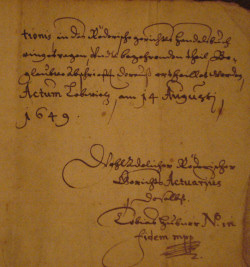 tionis in das Röderische gerichts handelsbuch
eingetragen und begehrenden theil
glaubte Abschrifft davon ertheilet werden
Actum Lobwitz, am 14 Augusti
1649.
Wohl Adelicher Röderischer
Gerichts Actuarius
daselbst.
Tobias Hübner N. 
fidem mpp